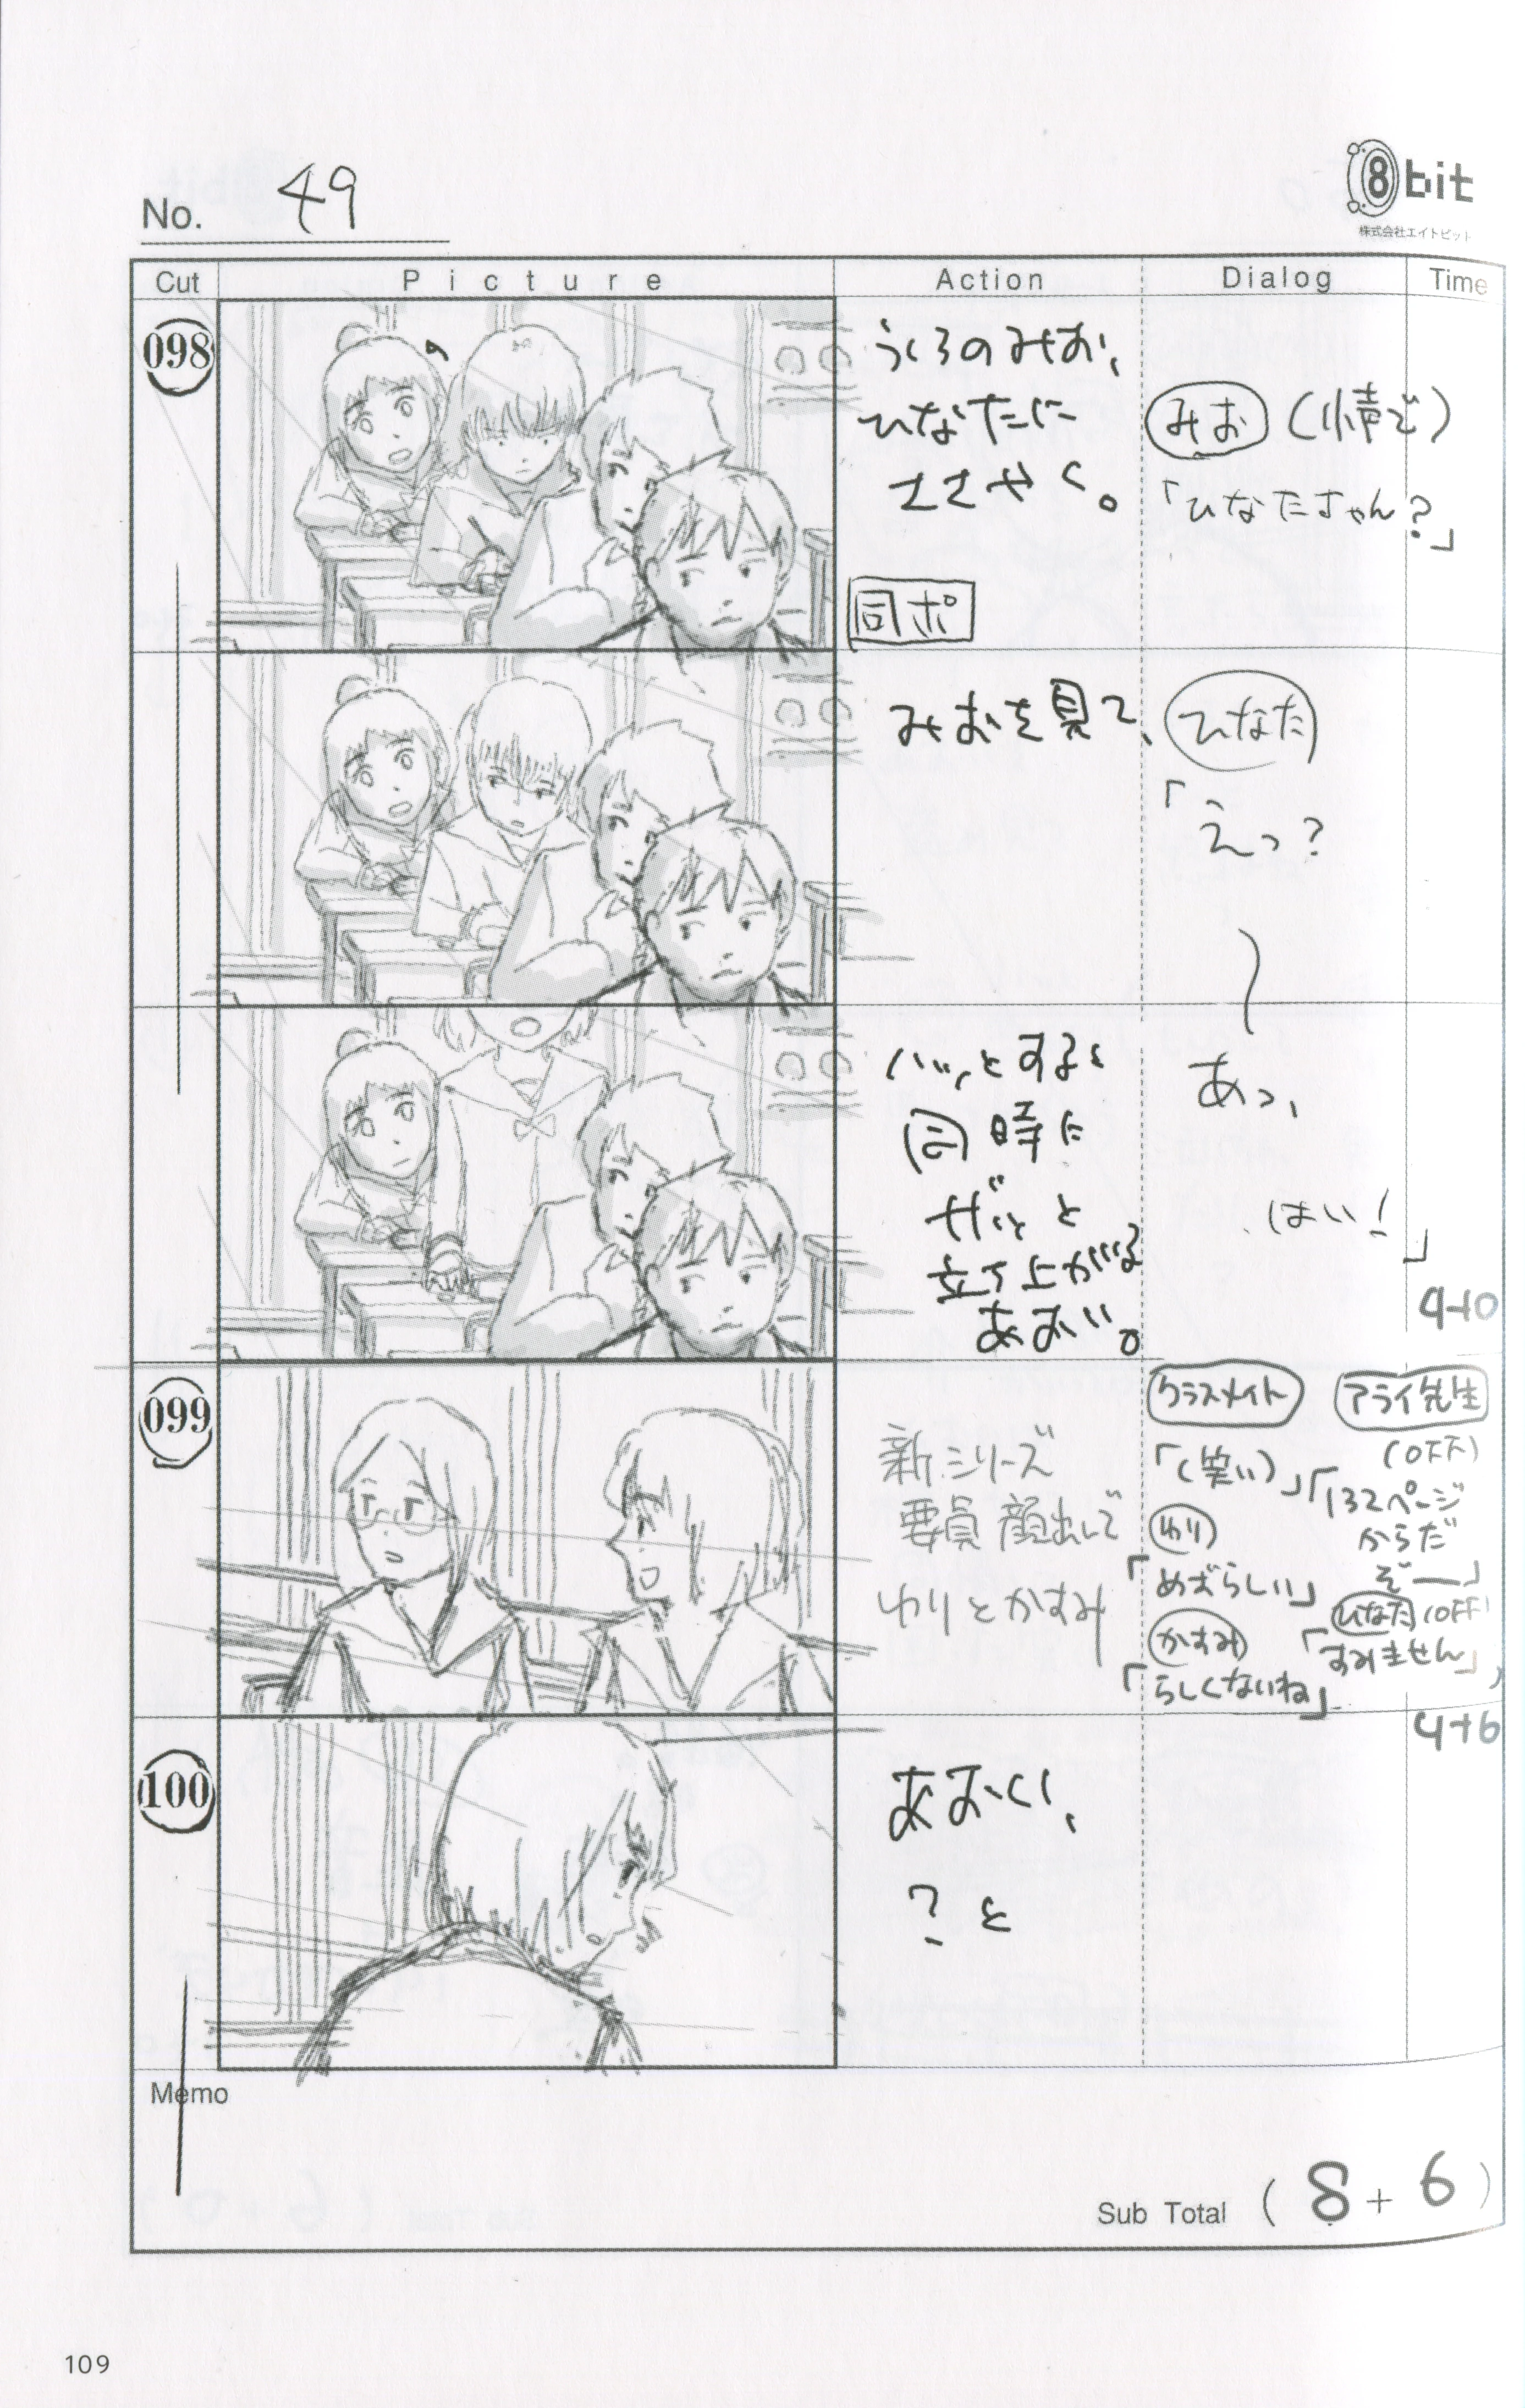 No. 49
8bit
株式会社エイトビット
Cut Picture Action Dialog Time
098
うしろのみお、
ひなたに
ささやく。
同ポ
みお (小声で)
「ひなたちゃん?」
みおを見て、
ひなた
「えっ?
ハッとすると
同時に
ガッと
立ち上がる
あおい。
あっ、
はい!」
4+0
099
新シリーズ
要員 顔出しで
ゆりとかすみ
クラスメイト
「(笑い)」
ゆり
「めずらしい」
かすみ
「らしくないね」
アライ先生
(OFF)
「132ページ
からだ
ぞー」
ひなた (OFF)
「すみません」
4+6
100
あおい、
? と
Memo
Sub Total ( 8 + 6 )
109